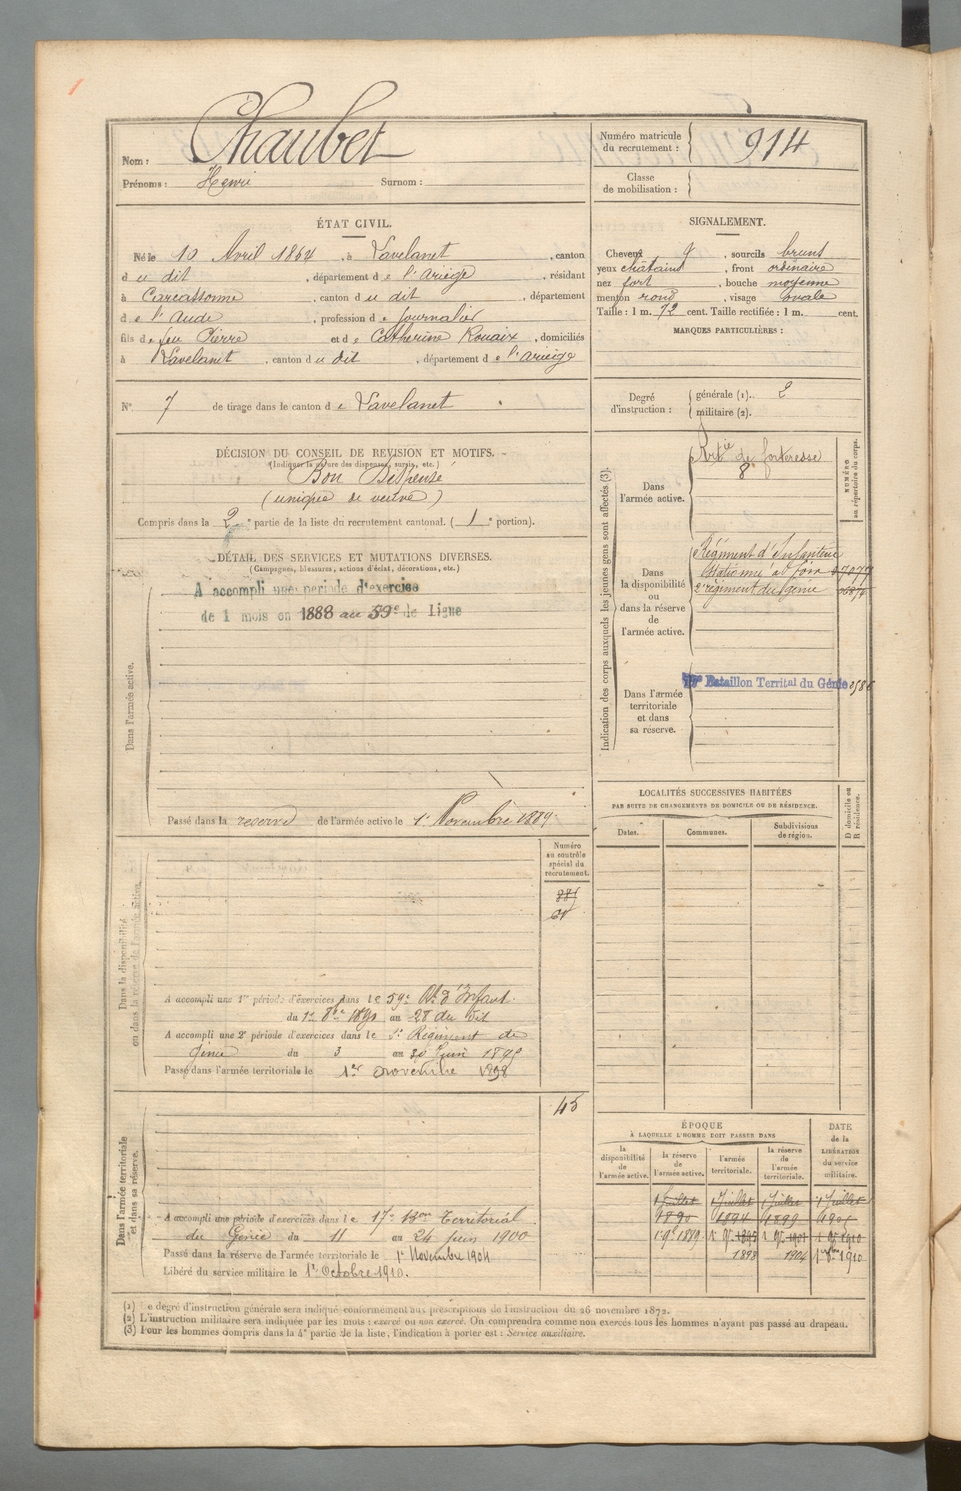 Nom : Chaubet
Prénoms : Henri Surnom :
Numéro matricule du recrutement : 914
Classe de mobilisation :
ÉTAT CIVIL.
Né le 10 Avril 1864, à Lavelanet, canton
du dit, département de l'Ariège, résidant
à Carcassonne, canton du dit, département
de l'Aude, profession de Journalier
fils de feu Pierre et de Catherine Rouaix, domiciliés
à Lavelanet, canton du dit, département de l'Ariège
SIGNALEMENT.
Cheveux, sourcils bruns
yeux châtains, front ordinaire
nez fort, bouche moyenne
menton rond, visage ovale
Taille : 1 m. 72 cent. Taille rectifiée : 1 m. cent.
MARQUES PARTICULIÈRES :
N° 7 de tirage dans le canton de Lavelanet
Degré d'instruction : générale (1).. 2
militaire (2).
DÉCISION DU CONSEIL DE REVISION ET MOTIFS.
(Indiquer la nature des dispenses, sursis, etc.)
Bon Dispensé
(unique de veuve)
Compris dans la 2e partie de la liste du recrutement cantonal. (1e portion).
DÉTAIL DES SERVICES ET MUTATIONS DIVERSES.
(Campagnes, blessures, actions d'éclat, décorations, etc.)
Dans l'armée active.
A accompli une période d'exercice
de 1 mois en 1888 au 59e de ligne
Passé dans la réserve de l'armée active le 1er Novembre 1889
Indication des corps auxquels les jeunes gens sont affectés (3).
NUMÉRO au répertoire du corps.
Dans l'armée active.
Artie de forteresse
8
Dans la disponibilité ou dans la réserve de l'armée active.
Régiment d'Infanterie
stationné à Foix
2e régiment du génie
Dans l'armée territoriale et dans sa réserve.
17me Bataillon Territal du Génie
LOCALITÉS SUCCESSIVES HABITÉES
PAR SUITE DE CHANGEMENTS DE DOMICILE OU DE RÉSIDENCE.
Dates. Communes. Subdivisions de région. D domicile ou R résidence.
Dans la disponibilité ou dans la réserve de l'armée active.
Numéro au contrôle spécial du recrutement.
A accompli une 1re période d'exercices dans le 59e Rt d'Infant.
du 1er 8bre 1890 au 28 du dit
A accompli une 2e période d'exercices dans le 2e Régiment de
Génie du 3 au 30 Juin 1895
Passé dans l'armée territoriale le 1er novembre 1898
Dans l'armée territoriale et dans sa réserve.
45
A accompli une période d'exercices dans le 17e Bon Territorial
du Génie du 11 au 24 juin 1900
Passé dans la réserve de l'armée territoriale le 1er Novembre 1904
Libéré du service militaire le 1er Octobre 1910.
ÉPOQUE
À LAQUELLE L'HOMME DOIT PASSER DANS
DATE de la LIBÉRATION du service militaire.
la disponibilité de l'armée active. la réserve de l'armée active. l'armée territoriale. la réserve de l'armée territoriale.
1 Juillet 1 Juillet 1 Juillet 1 Juillet
1890 1894 1899 1905
1 9e 1889 1 9e 1895 1 9e 1901 1 9e 1910
1898 1904 1910
(1) Le degré d'instruction générale sera indiqué conformément aux prescriptions de l'instruction du 26 novembre 1872.
(2) L'instruction militaire sera indiquée par les mots : exercé ou non exercé. On comprendra comme non exercés tous les hommes n'ayant pas passé au drapeau.
(3) Pour les hommes compris dans la 4e partie de la liste, l'indication à porter est : Service auxiliaire.